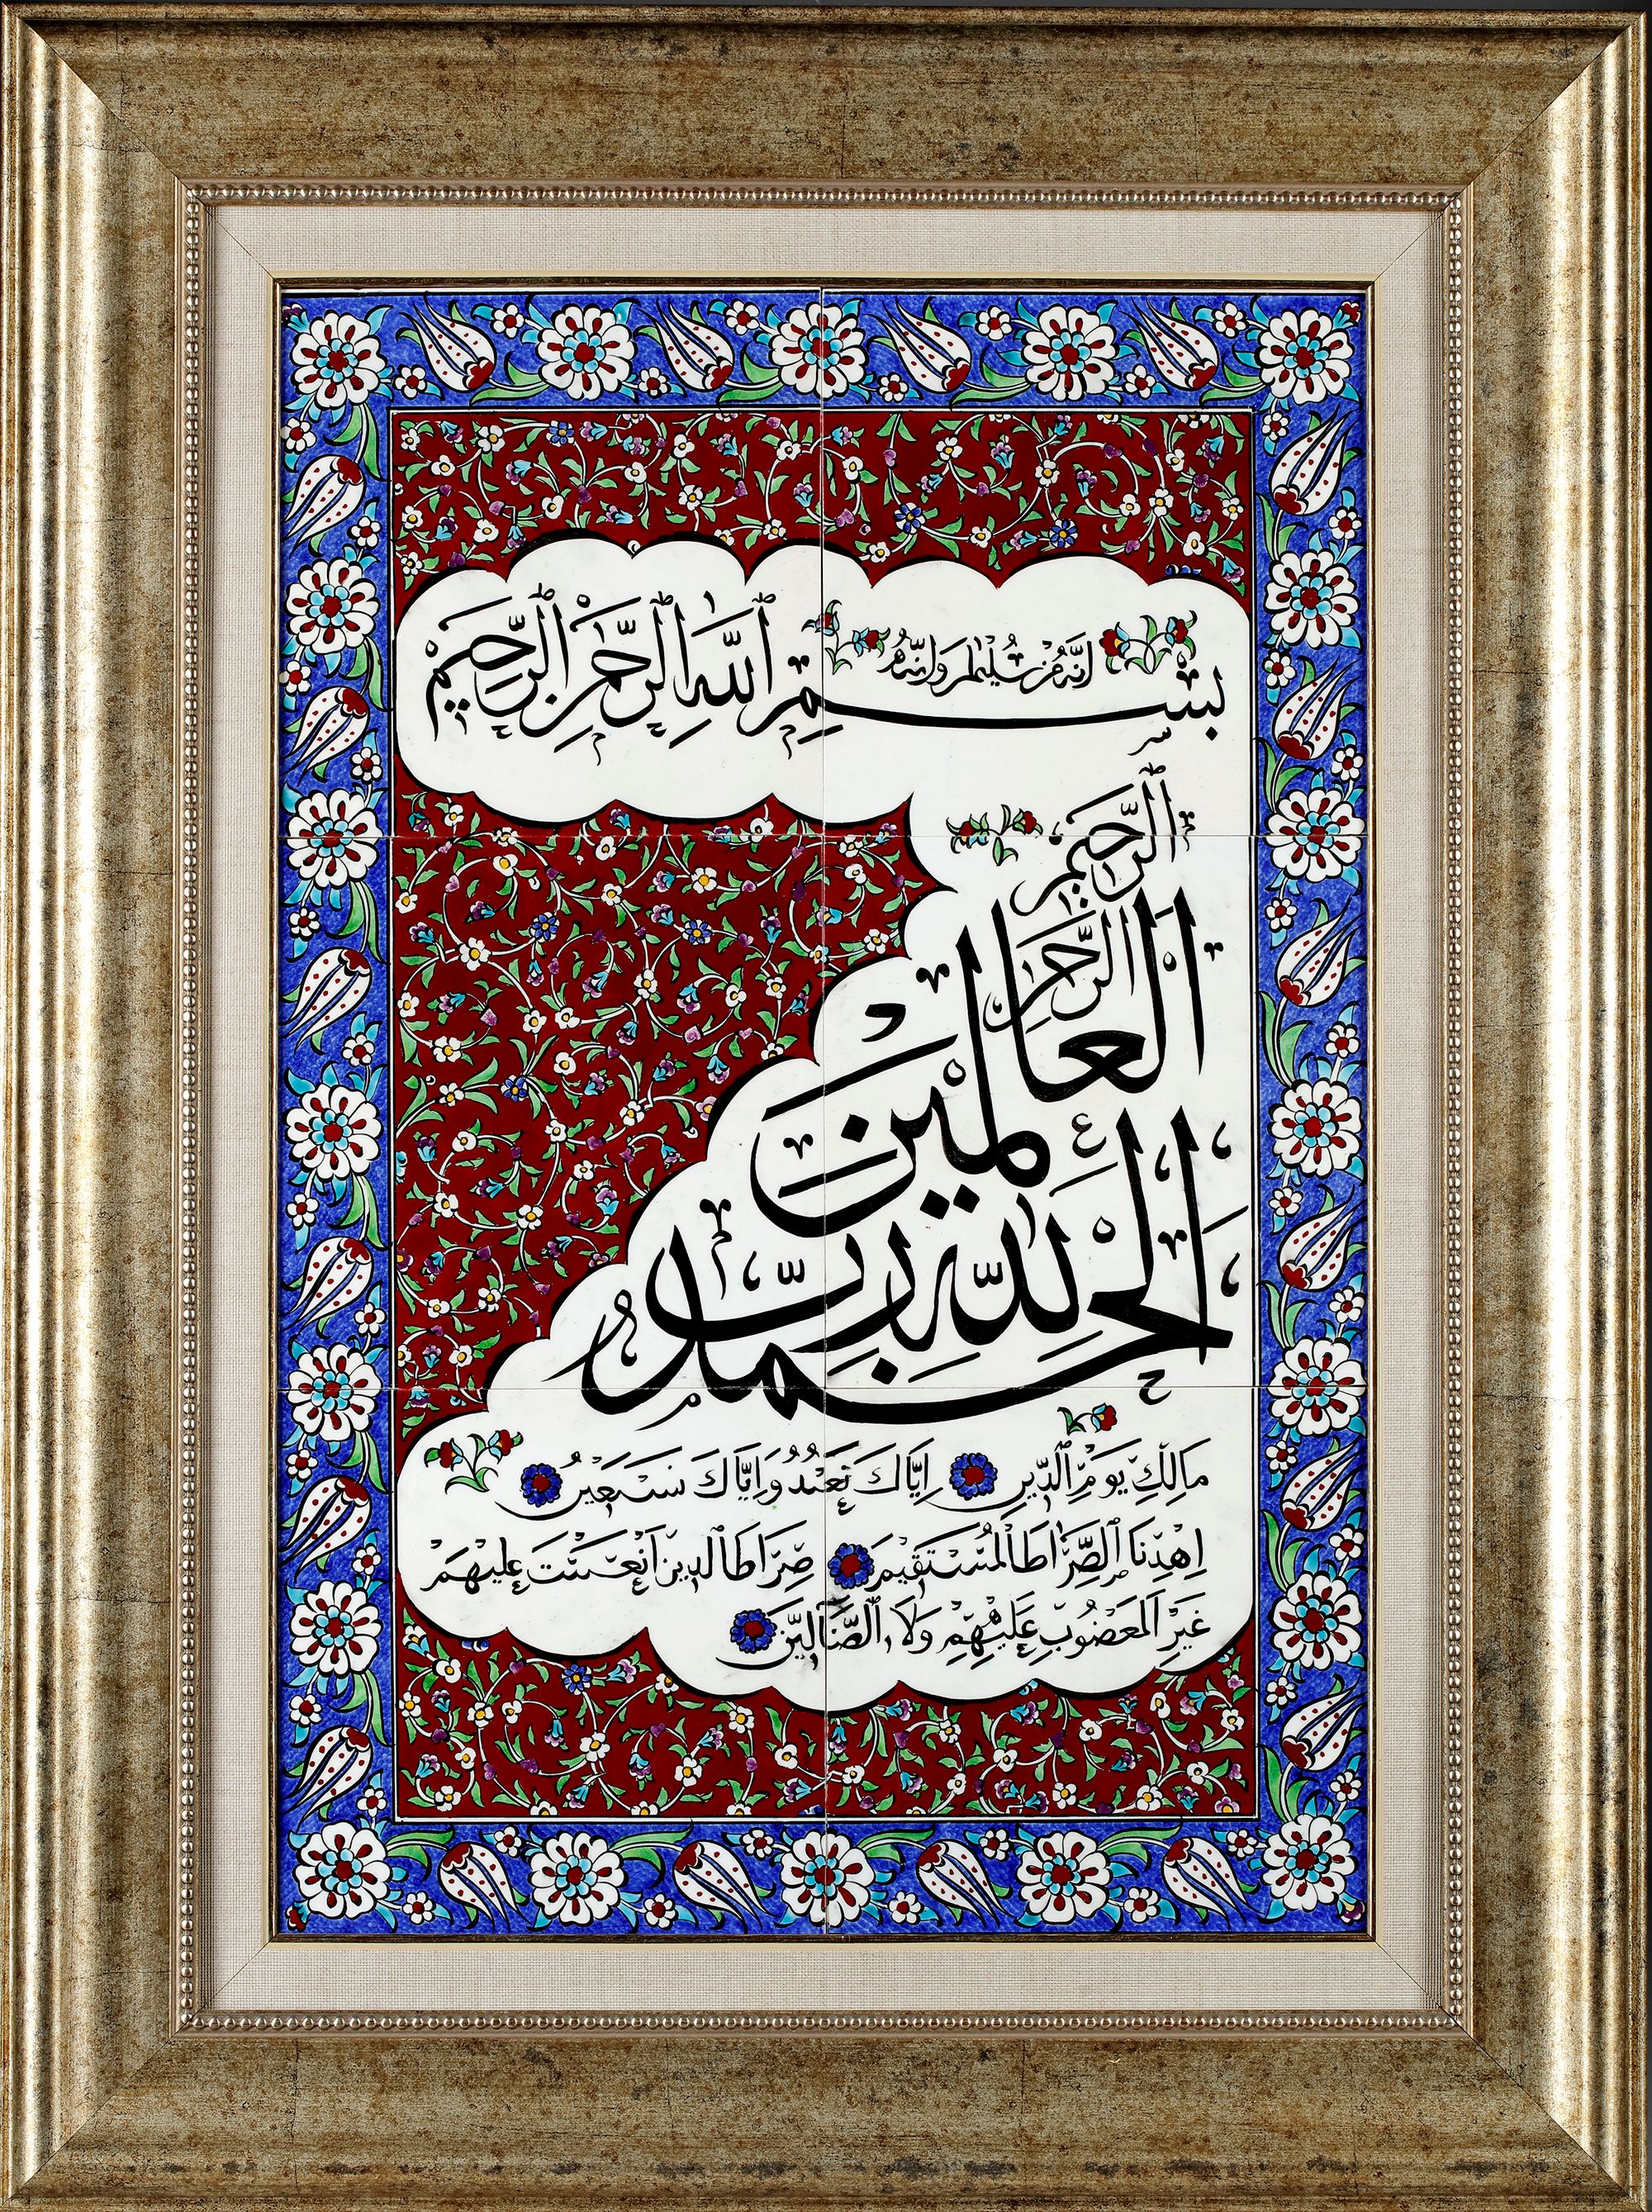 إنه من سليمان وإنه
بسم ٱلله ٱلرحمن ٱلرحيم
الحمد لله رب العالمين
ٱلرحمن ٱلرحيم
مالك يوم ٱلدين اياك نعبد واياك نستعين
اهدنا ٱلصراط المستقيم صراط ٱلذين انعمت عليهم
غير المغضوب عليهم ولا ٱلضالين